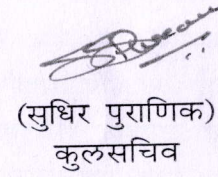 (सुधिर पुराणिक)
कुलसचिव